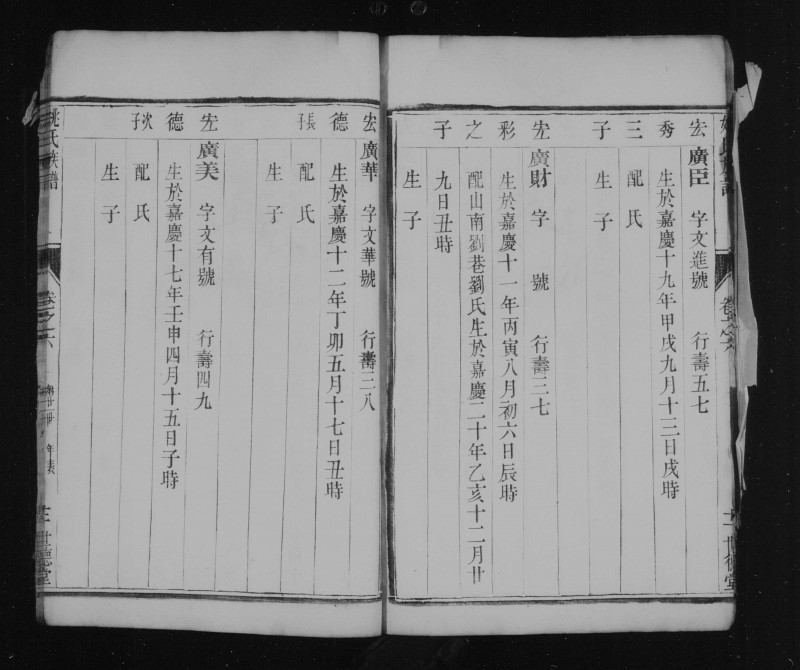 宏廣臣 字文進號 行壽五七
秀 生於嘉慶十九年甲戌九月十三日戌時
三 配氏
子 生子
宏廣財字 號 行壽三七
彩 生於嘉慶十一年丙寅八月初六日辰時
之 配山南劉巷劉氏生於嘉慶二十年乙亥十二月廿
子 九日丑時
宏廣華 字文華號 行壽三八
德 生於嘉慶十二年丁卯五月十七日丑時
長子 配氏
生子
宏廣美 字文有號 行壽四九
德 生於嘉慶十七年壬申四月十五日子時
次子 配氏
生子
姚氏族譜 卷之六 年表 世德堂